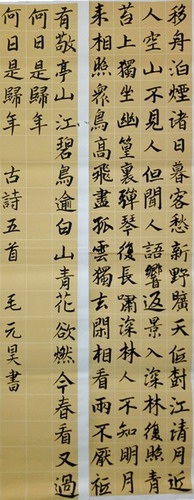 移舟泊煙渚日暮客愁新野曠天低對江清月近
人空山不見人但聞人語響返景入深林復照青
苔上獨坐幽篁裏彈琴復長嘯深林人不知明月
来相照衆鳥高飛盡孤雲獨去閑相看兩不厭低
有敬亭山江碧鳥逾白山青花欲燃今春看又過
何日是歸年
何日是歸年 古詩五首 毛元昊書